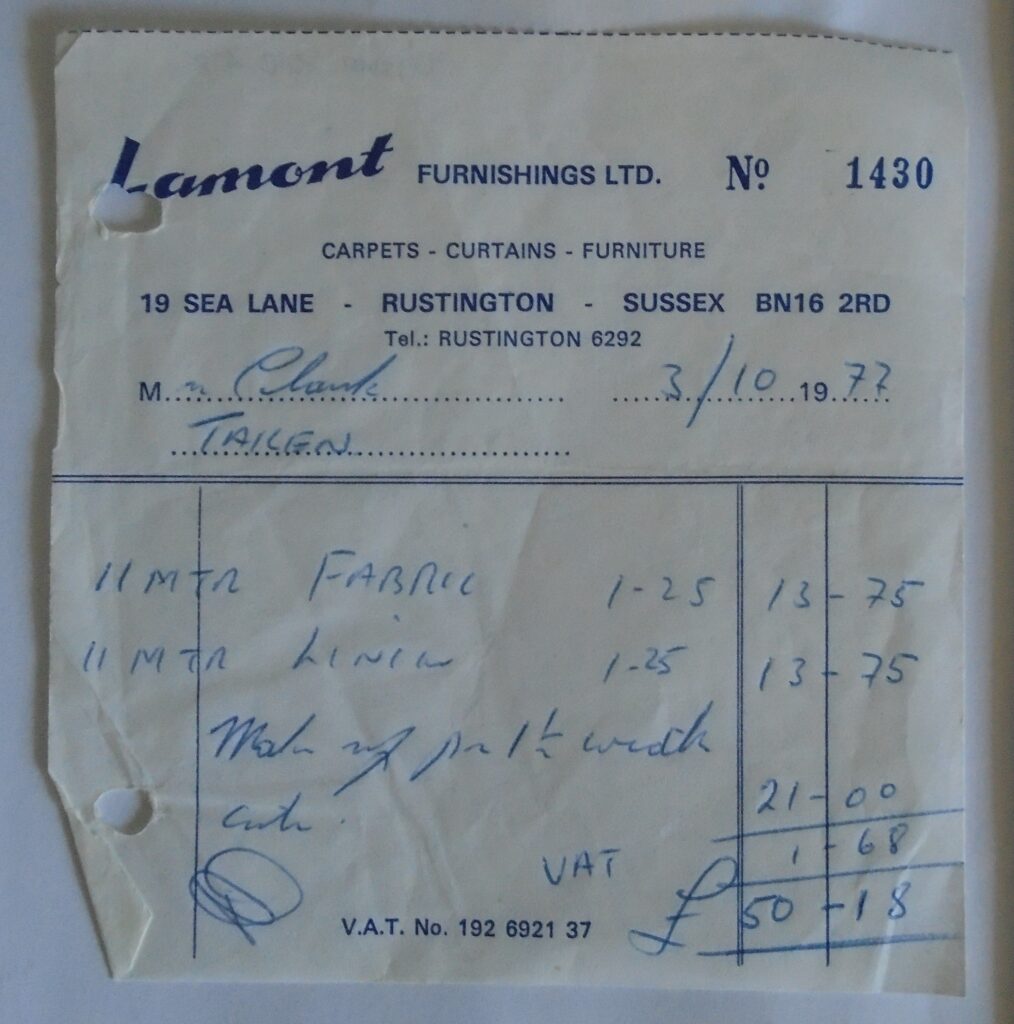 Lamont FURNISHINGS LTD. Nº 1430
CARPETS - CURTAINS - FURNITURE
19 SEA LANE - RUSTINGTON - SUSSEX BN16 2RD
Tel.: RUSTINGTON 6292
M r Clark 3/10 1977
TAKEN
11 MTR FABRIC 1-25 13-75
11 MTR LININ 1-25 13-75
Make up pr 1½ width
21-00
VAT 1-68
£ 50-18
V.A.T. No. 192 6921 37